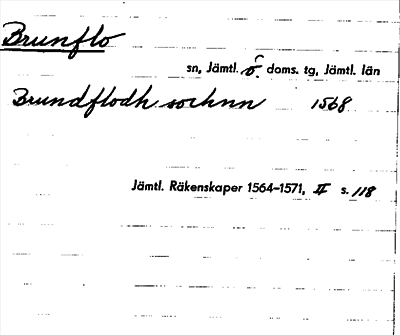 Brunflo
sn, Jämtl. ö. doms. tg, Jämtl. län
Brundflodh sochnn 1568
Jämtl. Räkenskaper 1564-1571, II s. 118